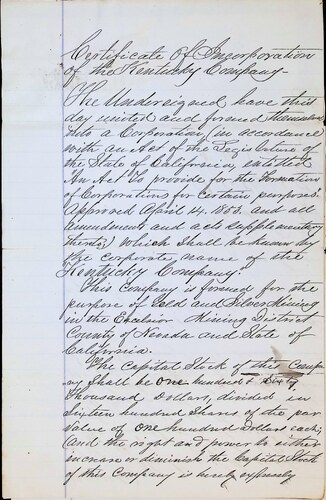 Certificate Of Incorporation
of the Kentucky Company
The Undersigned have this
day united and formed themselves
into a Corporation (in accordance
with an Act of the Legislature of
the State of California, entitled
"An Act To provide for the Formation
of Corporations for Certain purposes"
Approved April 14. 1853. and all
amendment and acts supplementary
thereto) which shall be known by
the corporate name of the
Kentucky Company.
This Company is formed for the
purpose of Gold and Silver Mining
in the Excelsior Mining District
County of Nevada and State of
California.
The Capital Stock of this Comp
any Shall be one hundred & Sixty
Thousand Dollars, divided in
Sixteen hundred Shares of the par
Value of one hundred Dollars each;
And the right and power to either
increase or diminish the Capital Stock
of this Company is hereby expressly